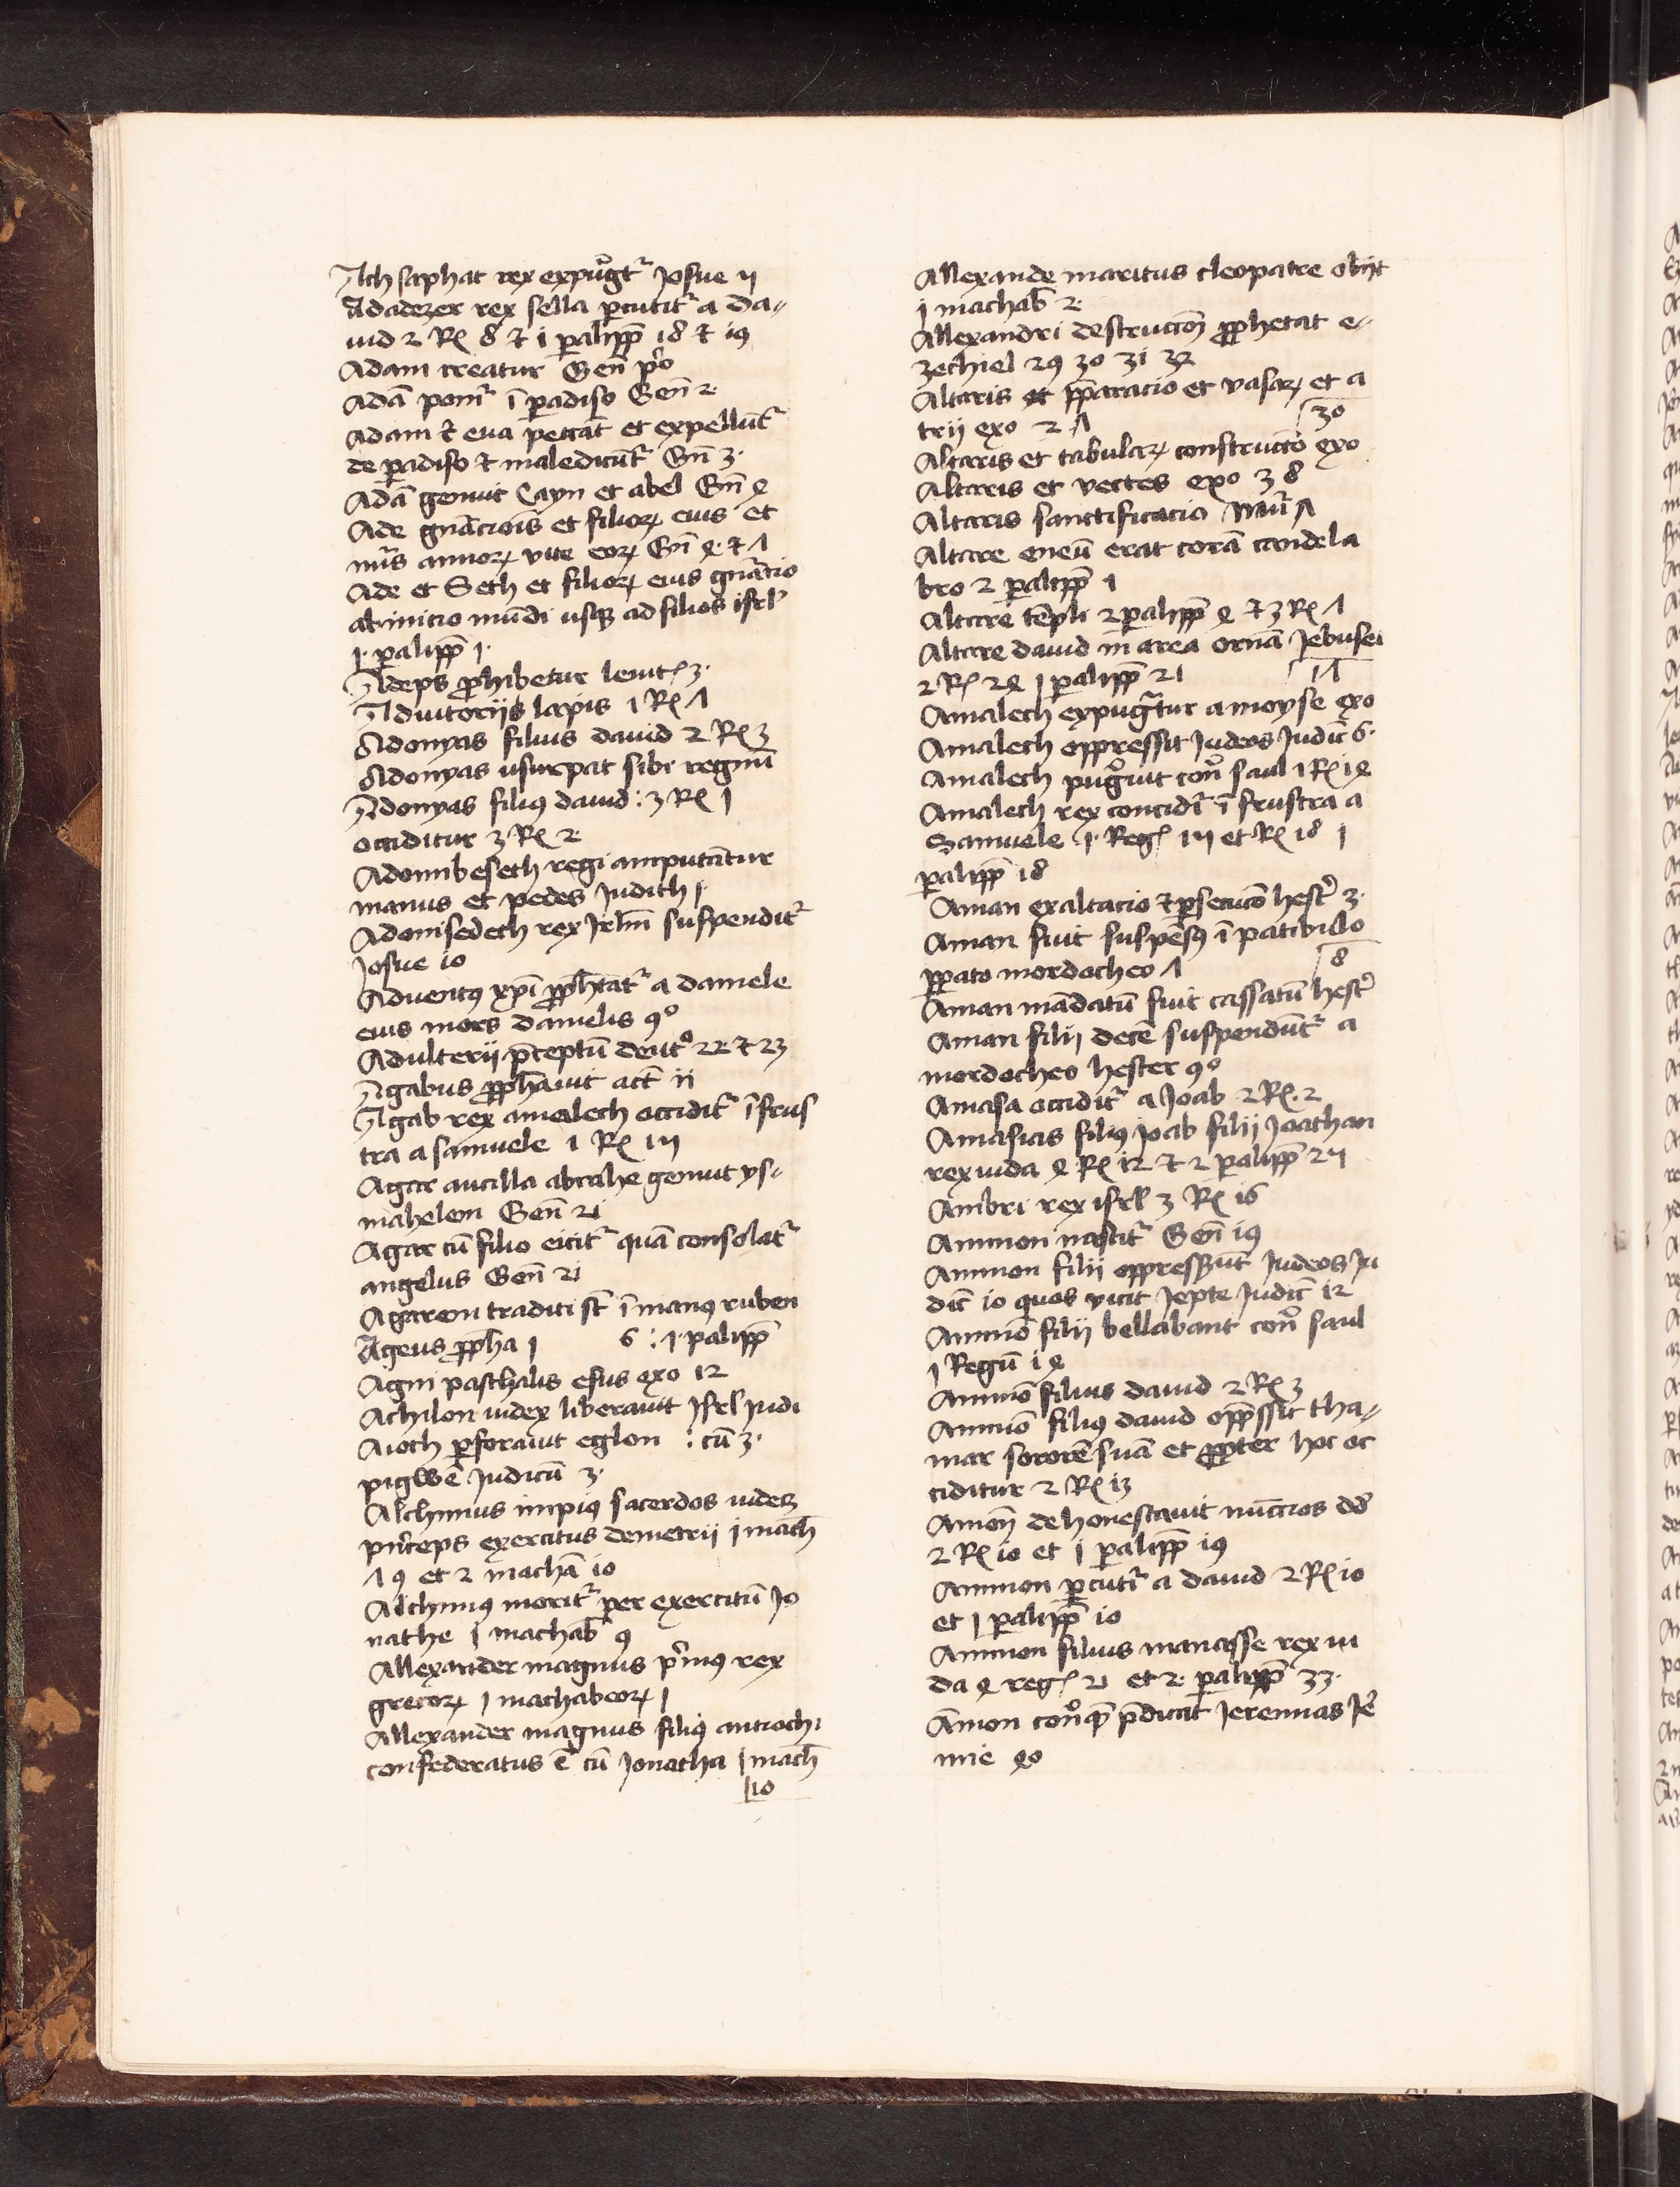 Achsaphat rex expugᷓtʳ Josue ij
Adadezer rex sella ꝑcutitʳ a da⸗
uid 2 Rꝭ 8 ⁊ i ꝑalipp̄ 18 ⁊ i9
Adam creatur Gen̄ pͦo
Adā ponitʳ ī ꝑadiso Gen̄ 2·
Adam ⁊ eua peccāt et expellūtʳ
de ꝑadiso ⁊ maledicūtʳ Gn̄ 3·
Adā genuit Cayn et abel Gn̄ 4
Ade gn̄ac̄iois et filioꝝ eius et
nūs annoꝝ vite eoꝝ Gn̄ 4· ⁊ 5
Ade et Seth et filioꝝ eius gn̄ac̄io
ab inicio mūdi usqꝫ ad filios isrl̓
1· ꝑalipp̄ 1·
Adeps ꝓhibetur leuitꝭ 3·
Adiutorijs lapis 1 Rꝭ 7
Adonyas filius dauid 2 Rꝭ 3
Adonyas usurpat sibi regnū
Adonyas filiꝰ dauid : 3 Rꝭ 1
occiditur 3 Rꝭ 2·
Adonibeseth regi amputātur
manus et pedes Judith j·
Adonisedech rex Jrl̄m suspenditʳ
Josue io
Aduentꝰ xp̄i ꝓph̄tātʳ a daniele
eius mors danielis 9°
Adulterij p̄ceptū deut° 22· ⁊ 23
Agabus ꝓph̄auit act̄ ii
Agab rex amalech occiditʳ ī frus
tra a samuele 1 Rꝭ 1ij
Agar ancilla abrahe genuit ys⸗
mahelem Gen̄ 2i
Agar cū filio eicitʳ quā consolatʳ
angelus Gen̄ 2i
Agareni traditi st̄ ī manꝰ ruben
Ageus ꝓph̄a j 6 : 1· ꝑalipp̄
Agni paschalis esus exo 12
Achilon iudex liberauit Jsrl̓ Judi
Aioth ꝑforauit eglon : cū 3·
pigwē Judicū 3·
Alchimus impiꝰ sacerdos uideꝫ
pn̄ceps exercitus demetrij j mach̄
7 9 et 2 machā io
Alchimꝰ moritʳ per exercitū Jo
nathe j machab̄ 9
Allexander magnus pͥmꝰ rex
grecoꝝ j machabeoꝝ j
Allexander magnus filiꝰ antiochi
confederatus ē cū Jonatha j mach̄
10
Allexande maritus cleopatre obijt
j machab̄ 2·
Allexandri destrucc̄oē ꝓphetat e⸗
zechiel 29 30 31 32
Altaris et p̄paracio et vasaꝝ et a
trij exo 2 7 30
Altaris et tabulaꝝ constructō exo
Altaris et vectes exo 3 8
Altaris sanctificacio Nūʳ 7
Altare eneū erat corā candela
bro 2 ꝑalipp̄ 1
Altare tēpli 2 ꝑalipp̄ 4 ⁊ 3 Rꝭ 7
Altare dauid in area ornā Jebusei
2 Rꝭ 24 j ꝑalipp̄ 21 17
Amalech expugᷓtur a moyse exo
Amalech oppressit Judeos Judic̄ 6·
Amalech pugᷓuit con̄ saul 1 Rꝭ i4
Amalech rex concidiʳ ī frustra a
Samuele 1· Regꝭ 1ij et Rꝭ 18 j
ꝑalipp̄ 18
Aman exaltacio ⁊ ꝑsecucō hestʳ 3·
Aman fuit suspēsꝰ ī patibulo
ꝑpato mordocheo 7 8
Aman mādatū fuit cassatū hestʳ
Aman filij decē suspendūtʳ a
mordocheo hester 9°
Amasa occiditʳ a Joab 2 Rꝭ· 2
Amasias filiꝰ joab filij Joathan
rex iuda 4 Rꝭ 12 ⁊ 2 ꝑalipp̄ 24
Ambri rex isrl̓ 3 Rꝭ i6
Ammon nascitʳ Gen̄ i9
Ammon filij oppresserūt Judeos Ju
dic̄ io quos vicit Jepte Judic̄ 12
Ammō filij bellabant con̄ saul
j Regū i4
Ammō filius dauid 2 Rꝭ 3
Ammō filiꝰ dauid opp̄ssit tha⸗
mar sororē suā et ꝓpter hoc oc
ciditur 2 Rꝭ i3
Amon̄ dehonestauit nūccios dd̓
2 Rꝭ io et j ꝑalipp̄ i9
Ammon ꝑcutiʳ a dauid 2 Rꝭ io
et j ꝑalipp̄ io
Ammon filius manasse rex iu
da 4 regꝭ 21 et 2· ꝑalipp̄ 33·
Āmon con̄ qꝫ p̄dicat Jeremias Je
mie 40